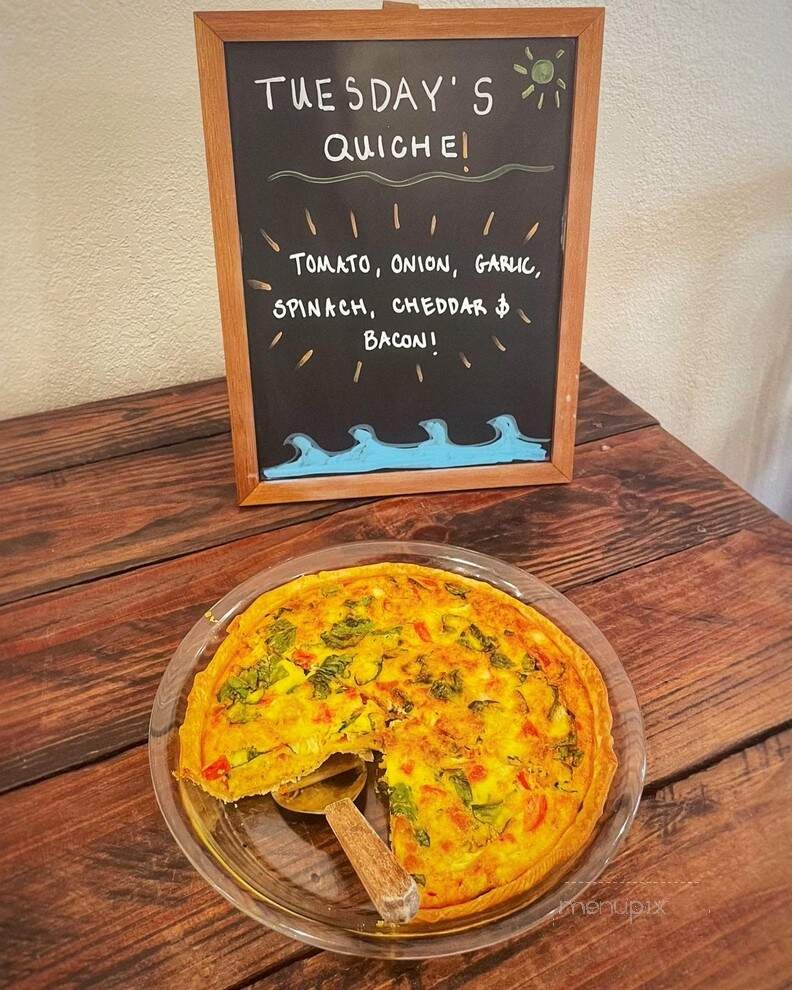 TUESDAY'S
QUICHE!
TOMATO, ONION, GARLIC,
SPINACH, CHEDDAR &
BACON!
menupix